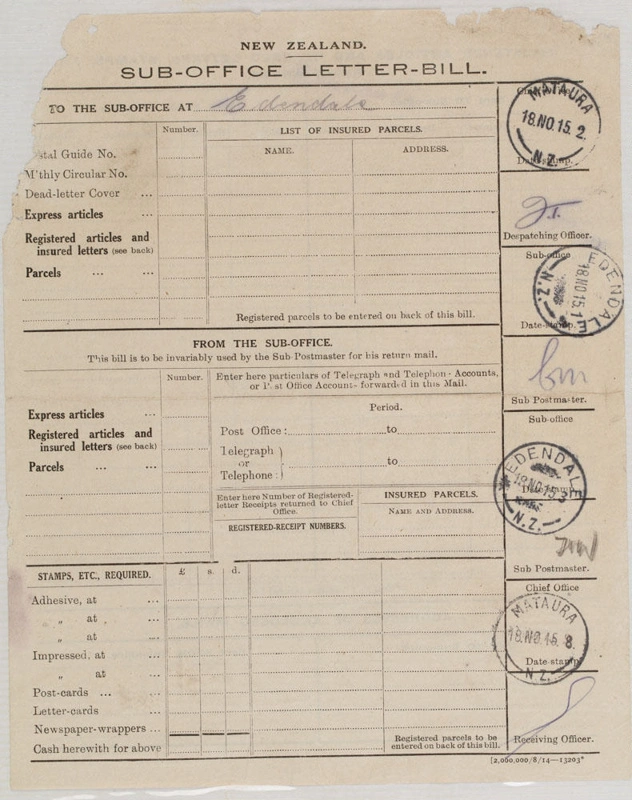 NEW ZEALAND.
SUB-OFFICE LETTER-BILL.
TO THE SUB-OFFICE AT Edendale
Number.
LIST OF INSURED PARCELS.
NAME.
ADDRESS.
stal Guide No.
M'thly Circular No.
Dead-letter Cover ...
Express articles ...
Registered articles and
insured letters (see back)
Parcels ... ...
Registered parcels to be entered on back of this bill.
MATAURA
18.NO.15.2.
N.Z.
Date-stamp.
Despatching Officer.
Sub-office
EDENDALE
18 NO 15.1
N.Z.
Date-stamp.
Sub Postmaster.
FROM THE SUB-OFFICE.
This bill is to be invariably used by the Sub Postmaster for his return mail.
Number.
Enter here particulars of Telegraph and Telephone Accounts,
or Post Office Accounts forwarded in this Mail.
Period.
Express articles ...
Registered articles and
insured letters (see back)
Parcels ... ...
Post Office: to
Telegraph
or
Telephone: to
Enter here Number of Registered-
letter Receipts returned to Chief
Office.
REGISTERED-RECEIPT NUMBERS.
INSURED PARCELS.
NAME AND ADDRESS.
Sub-office
EDENDALE
18 NO 15
N.Z.
Sub Postmaster.
STAMPS, ETC., REQUIRED.
£ s. d.
Adhesive, at ...
„ at , ...
„ at ...
Impressed, at ...
„ at ...
Post-cards ... ...
Letter-cards ...
Newspaper-wrappers ...
Cash herewith for above
Registered parcels to be
entered on back of this bill.
Chief Office
MATAURA
18.NO.15.8.
N.Z.
Date-stamp
Receiving Officer.
[2,000,000/8/14—13203*